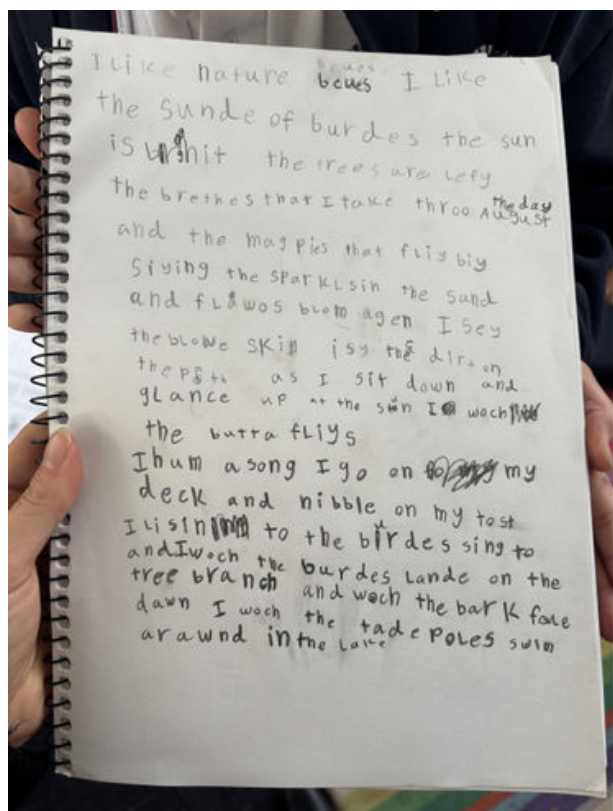 I like nature bcues I Like
the sunde of burdes the sun
is brhit the trees are lefy
the brethes that I take throo the day August
and the magpies that fliy biy
Siying the sparkLsin the sand
and flawos blom agen I sey
the blowe skin isy the dirt on
the path as I sit down and
gLance up at the sun I woch
the butta fliys
I hum a song I go on my
deck and nibble on my tost
I lisin to the burdes sing to
and I woch the burdes Lande on the
tree branch and woch the bark fale
dawn I woch the tade poles swim
arawnd in the Lake